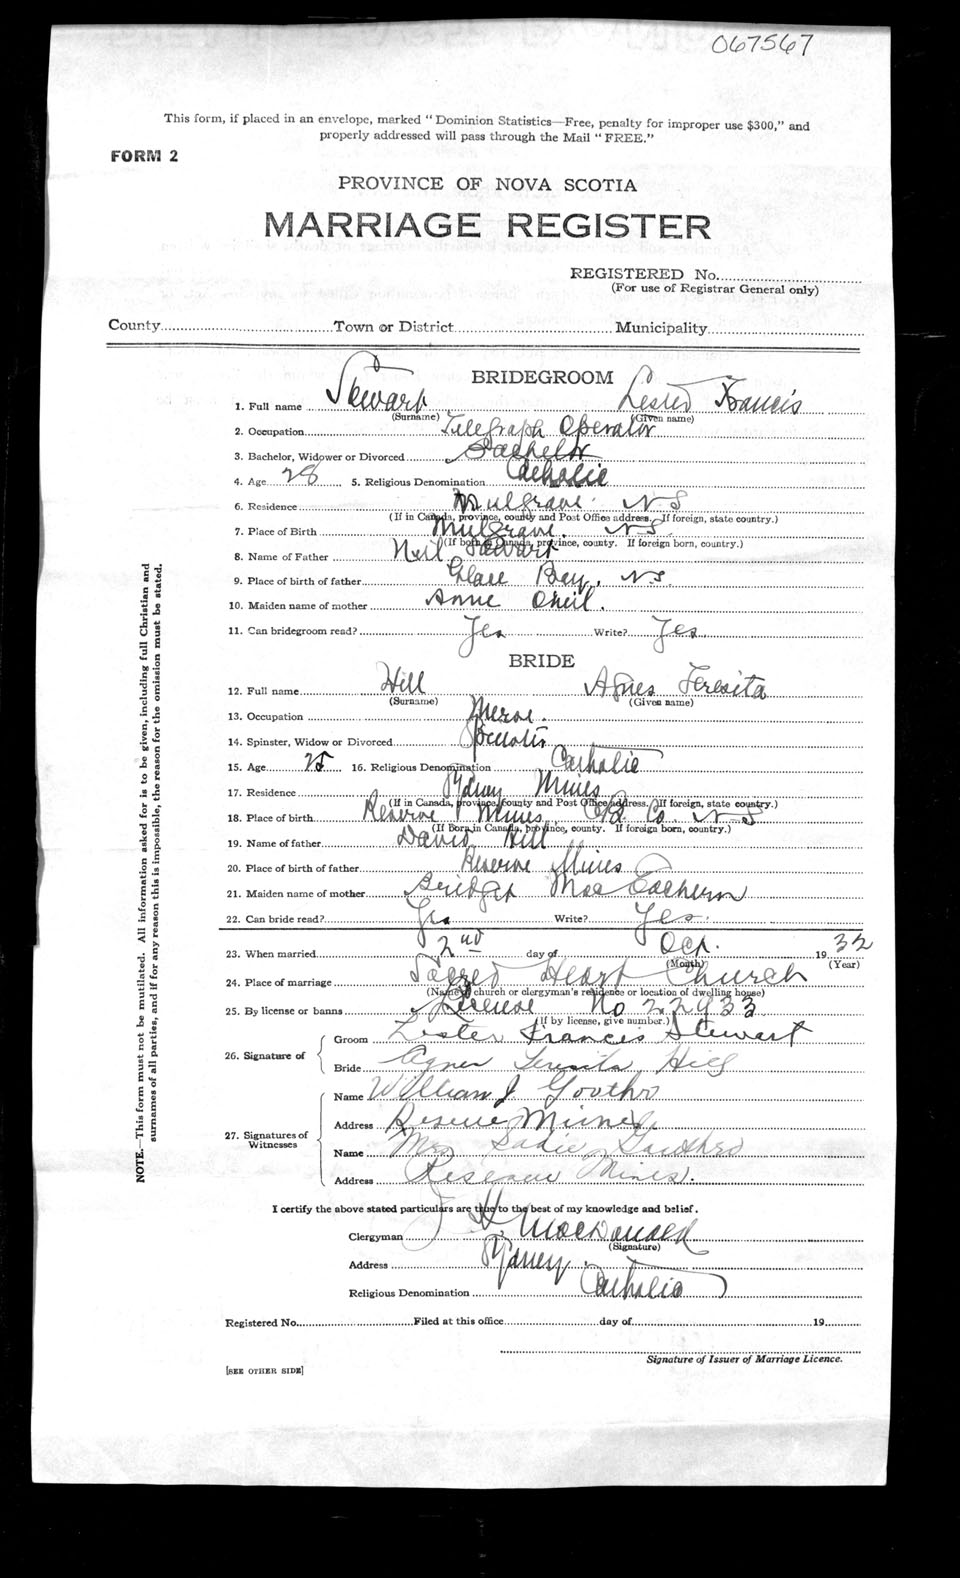 067567
This form, if placed in an envelope, marked "Dominion Statistics—Free, penalty for improper use $300," and
properly addressed will pass through the Mail "FREE."
FORM 2
PROVINCE OF NOVA SCOTIA
MARRIAGE REGISTER
REGISTERED No.
(For use of Registrar General only)
County Town or District Municipality
BRIDEGROOM
1. Full name Stewart Lester Francis
(Surname) (Given name)
2. Occupation Telegraph Operator
3. Bachelor, Widower or Divorced Bachelor
4. Age 28 5. Religious Denomination Catholic
6. Residence Mulgrave N S
(If in Canada, province, county and Post Office address. If foreign, state country.)
7. Place of Birth Mulgrave. N S
(If born in Canada, province, county. If foreign born, country.)
8. Name of Father Neil Stewart
9. Place of birth of father Glace Bay, N S
10. Maiden name of mother Anne Oneil.
11. Can bridegroom read? Yes Write? Yes
BRIDE
12. Full name Hill Agnes Teresita
(Surname) (Given name)
13. Occupation Nurse.
14. Spinster, Widow or Divorced
15. Age 25 16. Religious Denomination Catholic
17. Residence Sydney Mines
(If in Canada, province, county and Post Office address. If foreign, state country.)
18. Place of birth Reserve Mines CB Co. N S
(If Born in Canada, province, county. If foreign born, country.)
19. Name of father David Hill
20. Place of birth of father Reserve Mines
21. Maiden name of mother Bridget MacEachern
22. Can bride read? Yes Write? Yes.
23. When married 2nd day of Oct. 1932
(Month) (Year)
24. Place of marriage Sacred Heart Church
(Name of church or clergyman's residence or location of dwelling house)
25. By license or banns License No 22933
(If by license, give number.)
26. Signature of
Groom Lester Francis Stewart
Bride Agnes Teresita Hill
27. Signatures of
Witnesses
Name William J Gouthro
Address Reserve Mines
Name Mrs Sadie Gouthro
Address Reserve Mines.
I certify the above stated particulars are true to the best of my knowledge and belief.
Clergyman J H MacDonald
(Signature)
Address Sydney
Religious Denomination Catholic
Registered No. Filed at this office day of 19
Signature of Issuer of Marriage Licence.
[SEE OTHER SIDE]
NOTE.—This form must not be mutilated. All information asked for is to be given, including full Christian and
surnames of all parties, and if for any reason this is impossible, the reason for the omission must be stated.